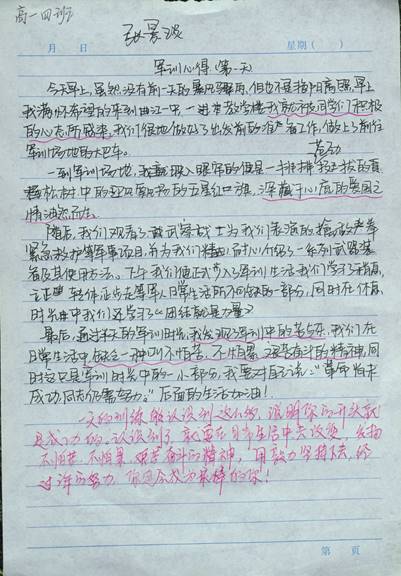 高一四班
月 日 星期( )
军训心得(第一天)
今天早上,虽然没有前一天的暴风骤雨,但也不是指阳高照,早上
我满怀希望的来到曲江一中,一进教学楼我就被同学们积极
的心态所感染,我们很快做好了出发前的准备工作,做上了前往
军训场地的大巴车。
感动
一到军训场地,我 映入眼帘的便是一排排挺拔的
松树中的迎风飘扬的五星红旗,深藏于心底的爱国之
情油然而生。
随后,我们观看了武警战士为我们表演的擒敌拳
紧急救护等军事项目,并为我们精 耐心介绍了一系列武器装
备及其使用方法。下午我们便正式步入了军训生活我们学习了稍息,
立正 军人日常生活所不可缺的一部分,同时在休息
时光中我们还学习了《团结就是力量》
最后,通过今天的军训时光,我发现了军训中的苦与乐,我们在
日常生活中缺 一种叫不怕苦、不怕累、艰苦奋斗的精神,同
时这只是军训时光中的一小部分,我要对自己说:“革命尚未
成功,同志仍需努力。”后面的生活加油!
一天的训练能认识到这么多,说明你的开头就
是成功的。认识到了,就要在日常生活中去改变,发扬
不怕苦、不怕累、艰苦奋斗的精神,用毅力坚持下去,经
过 的努力,你还会成为最棒的你!
第 页